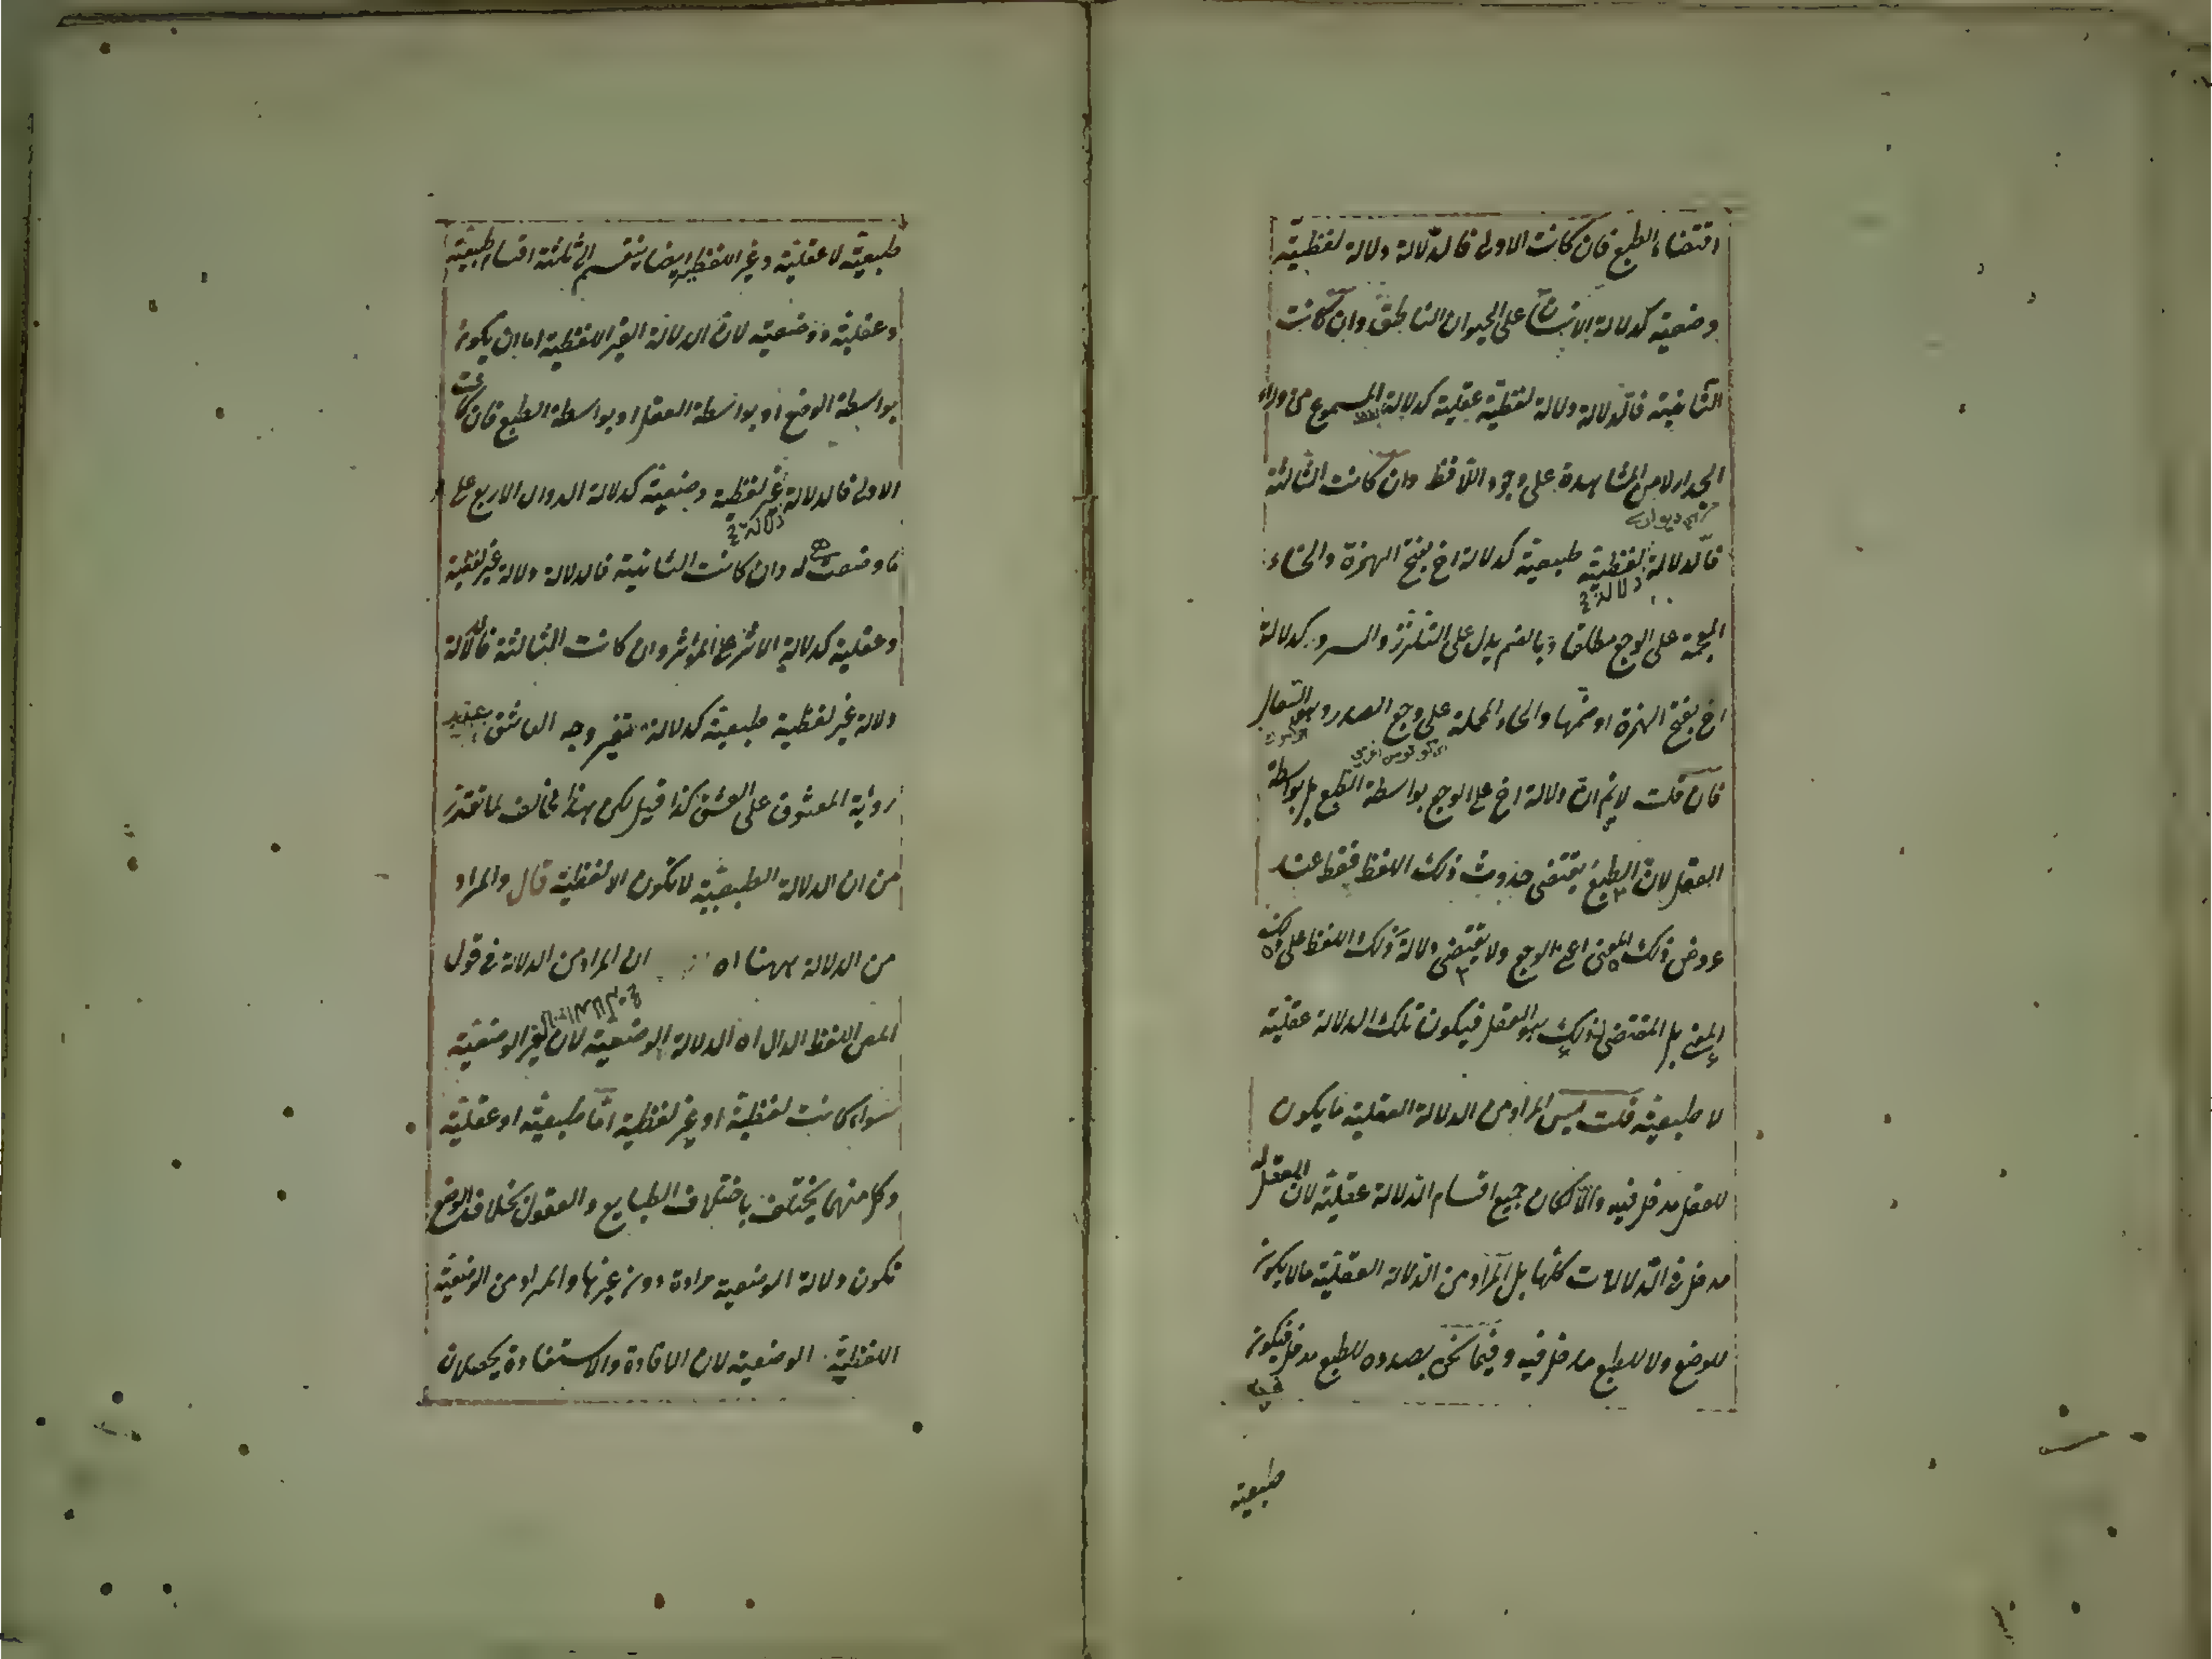 اقتضاء الطبع فان كانت الاولى فالدلالة دلالة لفظية
وضعية كدلالة الانسان على الحيوان الناطق وان كانت
الثانية فالدلالة دلالة لفظية عقلية كدلالة المسموع من وراء
الجدار لا من المشاهدة على وجود اللافظ وان كانت الثالثة
فالدلالة لفظية طبيعية كدلالة اخ بفتح الهمزة والخاء
دلالة
المعجمة على الوجع مطلقا وبالضم يدل على التلذذ والسرور كدلالة
اخ بفتح الهمزة او ضمها والحاء المهملة على وجع الصدر وهو السعال
فان قلت لانم ان دلالة اخ على الوجع بواسطة الطبع بل بواسطة
العقل لان الطبع يقتضى حدوث ذلك اللفظ فقط عند
عروض ذلك المعنى اعنى الوجع ولا يقتضى دلالة ذلك اللفظ على ذلك
المعنى بل المقتضى لذلك هو العقل فيكون تلك الدلالة عقلية
لا طبيعية قلت ليس المراد من الدلالة العقلية ما يكون
للعقل مدخل فيه والا لكان جميع اقسام الدلالة عقلية لان العقل له
مدخل فى الدلالات كلها بل المراد من الدلالة العقلية ما لا يكون
للوضع ولا للطبع مدخل فيه وفيما نحن بصدده للطبع مدخل فيكون
طبيعية
طبيعية لا عقلية وغير اللفظية ايضا ينقسم الى ثلثة اقسام طبيعية
وعقلية ووضعية لان الدلالة الغير اللفظية اما ان يكون
بواسطة الوضع او بواسطة العقل او بواسطة الطبع فان كانت
الاولى فالدلالة غير لفظية وضعية كدلالة الدوال الاربع على
دلالة
ما وضعت له وان كانت الثانية فالدلالة دلالة غير لفظية
وعقلية كدلالة الاثر على المؤثر وان كانت الثالثة فالدلالة
دلالة غير لفظية طبيعية كدلالة تغير وجه العاشق عند
رؤية المعشوق على العشق كذا قيل لكن هذا مخالف لما تقرر
من ان الدلالة الطبيعية لا تكون الا لفظية قال والمراد
من الدلالة ههنا اه ان المراد من الدلالة فى قول
المص اللفظ الدال اه الدلالة الوضعية لان غير الوضعية
سواء كانت لفظية او غير لفظية اما طبيعية او عقلية
وكل منهما يختلف باختلاف الطبايع والعقول بخلاف الوضع
تكون دلالة الوضعية مرادة دون غيرها والمراد من الوضعية
اللفظية الوضعية لان الافادة والاستفادة يحصلان